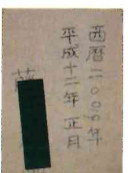 西暦二〇〇〇年
平成十二年 正月